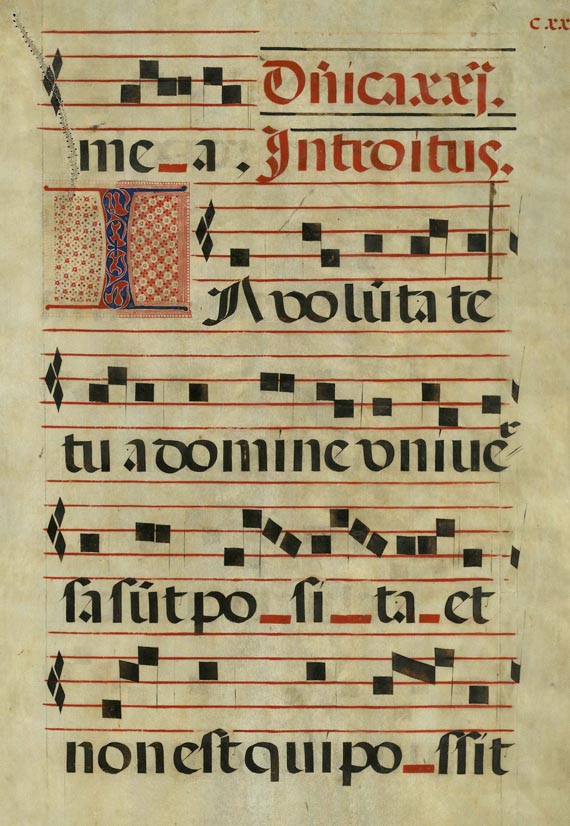 C xx
Dñica.xxj.
me_a. Introitus.
IN volūta te
tu a domine vniueʳ
ſa ſūt po_ſi_ta_et
non eſt qui po_ſſit